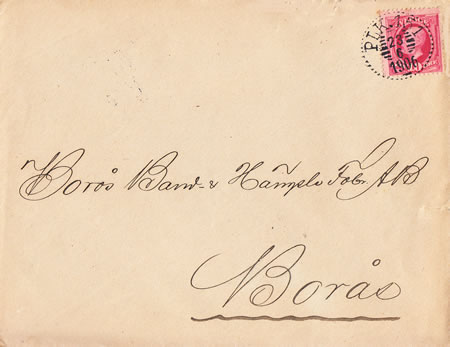 23
6
1906
Borås Band- & Hampls Fabr. AB
Borås